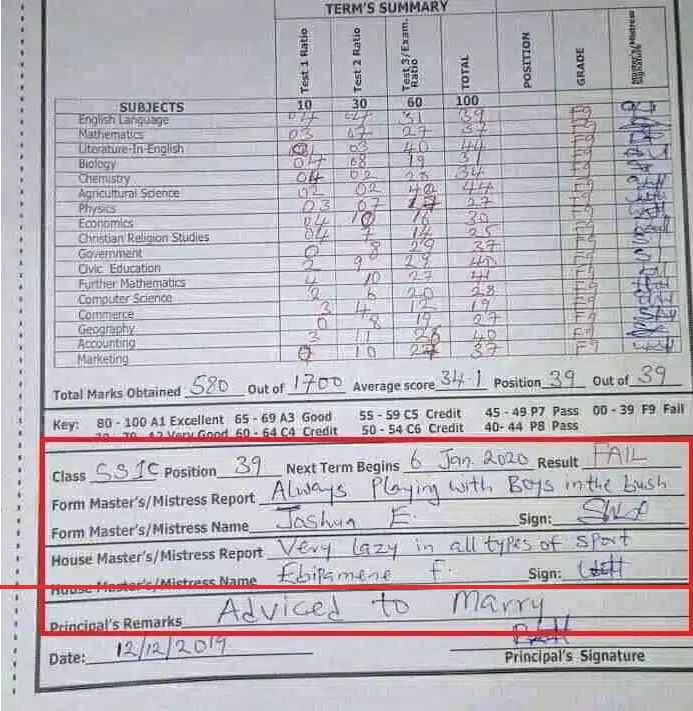 TERM'S SUMMARY
Test 1 Ratio Test 2 Ratio Test 3/Exam. Ratio TOTAL POSITION GRADE Master's/Mistress Signature
SUBJECTS 10 30 60 100
English Language 04 04 31 39 F9
Mathematics 03 07 27 37 F9
Literature-In-English 01 03 40 44 F9
Biology 04 08 19 31 F9
Chemistry 04 02 28 34 F9
Agricultural Science 02 02 40 44 F9
Physics 03 07 17 27 F9
Economics 04 10 16 30 F9
Christian Religion Studies 04 7 14 25 F9
Government 0 8 29 37 F9
Civic Education 2 9 29 40 F9
Further Mathematics 4 10 27 41 F9
Computer Science 2 6 20 28 F9
Commerce 3 4 12 19 F9
Geography 0 8 19 27 F9
Accounting 3 11 26 40 F9
Marketing 0 10 27 37 F9
Total Marks Obtained 580 Out of 1700 Average score 34.1 Position 39 Out of 39
Key: 80 - 100 A1 Excellent 65 - 69 A3 Good 55 - 59 C5 Credit 45 - 49 P7 Pass 00 - 39 F9 Fail
70 - 79 A2 Very Good 60 - 64 C4 Credit 50 - 54 C6 Credit 40- 44 P8 Pass
Class SS1C Position 39 Next Term Begins 6 Jan. 2020 Result FAIL
Form Master's/Mistress Report Always Playing with Boys in the bush
Form Master's/Mistress Name Joshua E. Sign:
House Master's/Mistress Report Very lazy in all types of sport
House Master's/Mistress Name Ebipamene f. Sign:
Principal's Remarks Adviced to Marry
Date: 12/12/2019
Principal's Signature